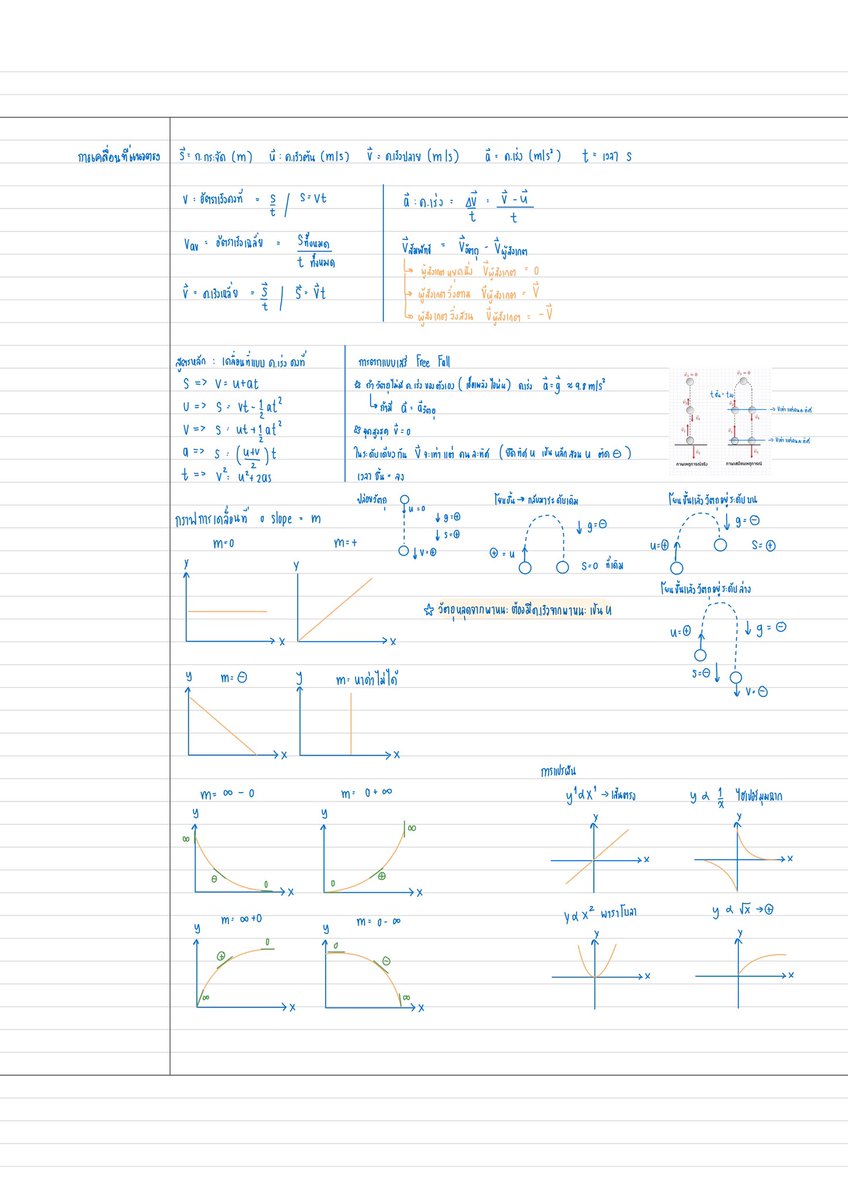 การเคลื่อนที่แนวตรง
s⃗ = ก.กระจัด (m) u⃗ : ค.เร็วต้น (m/s) v⃗ = ค.เร็วปลาย (m/s) a⃗ = ค.เร่ง (m/s²) t = เวลา s
v : อัตราเร็วคงที่ = s/t / s = vt
Vav = อัตราเร็วเฉลี่ย = sทั้งหมด / t ทั้งหมด
v⃗ = ค.เร็วเฉลี่ย = s⃗/t / s⃗ = v⃗t
a⃗ : ค.เร่ง = Δv⃗/t = (v⃗ - u⃗)/t
v⃗สัมพัทธ์ = v⃗วัตถุ - v⃗ผู้สังเกต
ผู้สังเกตหยุดนิ่ง v⃗ผู้สังเกต = 0
ผู้สังเกตวิ่งตาม v⃗ผู้สังเกต = v⃗
ผู้สังเกตวิ่งสวน v⃗ผู้สังเกต = -v⃗
สูตรหลัก : เคลื่อนที่แบบ ค.เร่ง คงที่
s => v = u+at
u => s = vt - 1/2 at²
v => s = ut + 1/2 at²
a => s = (u+v / 2) t
t => v² = u² + 2as
การตกแบบเสรี Free Fall
☆ ถ้าวัตถุไม่มี ค.เร่ง ของตัวเอง ค.เร่ง a⃗ = g⃗ ≈ 9.8 m/s²
ถ้ามี a⃗ = a⃗วัตถุ
☆ จุดสูงสุด v⃗ = 0
ในระดับเดียวกัน v⃗ จะเท่าแต่ คนละทิศ (ยึดทิศ u เป็นหลักสวน u ติด ⊖)
เวลาขึ้น = ลง
ภาพเหตุการณ์จริง
ภาพเสมือนเหตุการณ์
กราฟการเคลื่อนที่ o slope = m
m=0
m=+
y
x
y
x
m=⊖
m=หาค่าไม่ได้
y
x
y
x
m= ∞ - 0
m= 0 + ∞
y
∞
⊖
0
x
y
0
⊕
∞
x
m= ∞ + 0
m= 0 - ∞
y
∞
⊕
0
x
y
0
⊖
∞
x
ปล่อยวัตถุ
u=0
g=⊕
s=⊕
v=⊕
โยนขึ้น → กลับมาระดับเดิม
g=⊖
⊕ = u
s=0 ที่เดิม
โยนขึ้นแล้ววัตถุอยู่ระดับบน
g=⊖
u=⊕
s=⊕
☆ วัตถุหลุดจากพาหนะ ต้องมีค.เร็วจากพาหนะ เป็น u
โยนขึ้นแล้ววัตถุอยู่ระดับล่าง
u=⊕
g = ⊖
s=⊖
v=⊖
การแปรผัน
y¹ ∝ x¹ → เส้นตรง
y
x
y ∝ 1/x ไฮเปอร์มุมฉาก
y
x
y ∝ x² พาราโบลา
y
x
y ∝ √x → ⊕
y
x